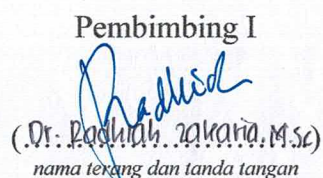 Pembimbing I
Radhiah
(Dr. Radhiah Zakaria, M.Sc)
nama terang dan tanda tangan